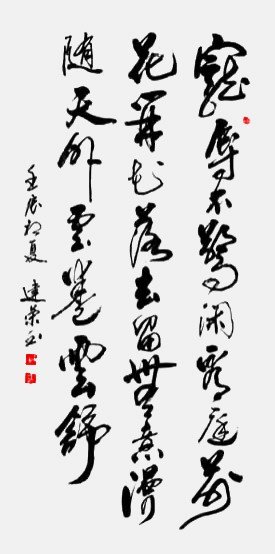 寵辱不驚闲看庭前
花開花落去留無意漫
随天外雲卷雲舒
壬辰初夏 建荣书